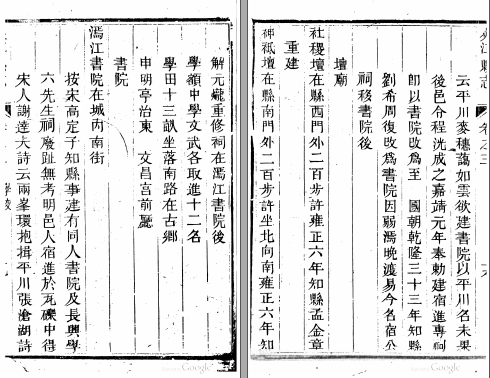 解元巍重修祠在漹江書院後
學額中學文武各取進十二名
學田十三畝坐落南路在古鄉
申明亭治東　文昌宮前廳
書院
漹江書院在城內南街
按宋高定子知縣事建有同人書院及長興學
六先生祠廢趾無考明邑人宿進於瓦礫中得
宋人謝逵夫詩云兩峯環抱揖平川張滄湖詩
學校
江縣志　卷之三
云平川麥穗藹如雲欲建書院以平川名未果
後邑令程洸成之嘉靖元年奉勅建宿進專祠
卽以書院改至　國朝乾隆三十三年知縣
劉希周復改爲書院因弱漹晚渡易今名宿公
祠移書院後
壇廟
社稷壇在縣西門外二百步許雍正六年知縣孟金章
重建
神祇壇在縣南門外二百步許坐北向南雍正六年知
Google
Google